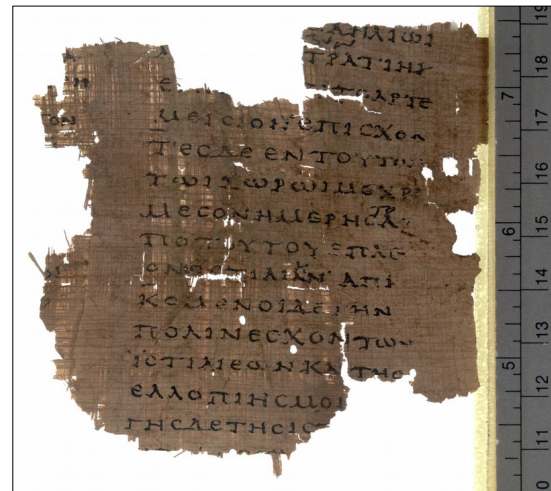 ΑΗΛΙΩΙ
ΤΡΑΤΙΗΙ
ΤΟΑΡΤΕ
ΟΝ ΜΕΙϹΙΟΝ ΕΠΙϹΧΟΝ
ΤΕϹΔΕΕΝΤΟΥΤΩΙ
ΤΩΙΧΩΡΩΙΜΕΧΡΙ
ΜΕϹΟΝΗΜΕΡΗϹΑ
ΠΟΤΟΥΤΟΥΕΠΛΕ
ΤΙΑΙΗΝ ΑΠΙ
ΚΟΜΕΝΟΙΔΕΤΗΝ
ΠΟΛΙΝΕϹΧΟΝΤΩΝ
ΙϹΤΙΑΙΕΩΝΚΑΙΤΗϹ
ΕΛΛΟΠΙΗϹΜΟΙ
ΓΗϹΔΕΤΗϹΙϹ
19
18
7
17
16
15
6
14
13
5
12
11